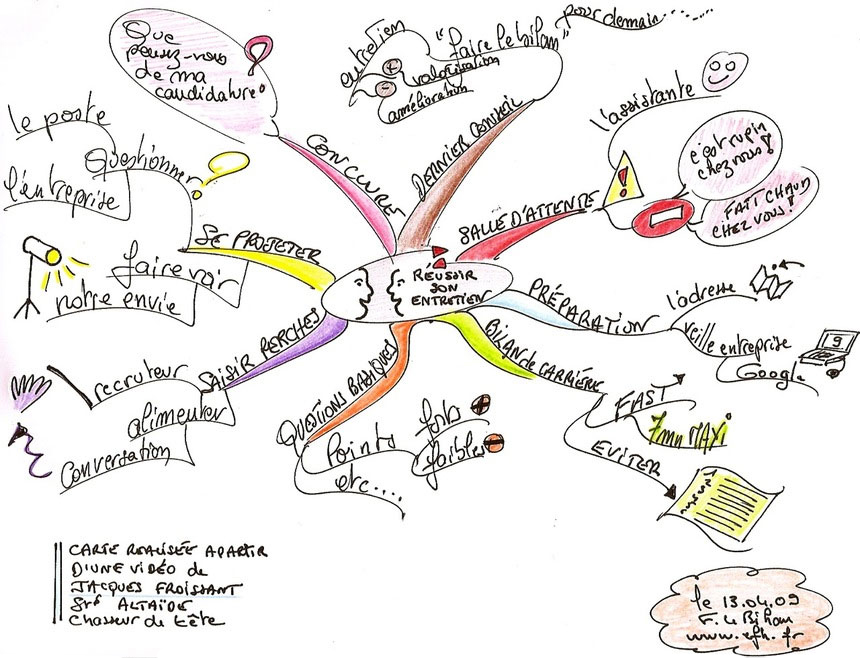 RÉUSSIR
SON
ENTRETIEN
SALLE D'ATTENTE
l'assistante
c'est rupin
chez vous!
FAIT CHAUD
CHEZ VOUS!
PRÉPARATION
l'adresse
veille entreprise
Google
BILAN de CARRIÈRE
FAST
7mn MAXI
EVITER
QUESTIONS BASIQUES
Points
forts
faibles
etc....
SAISIR PERCHES
recruteur
alimenter
conversation
SE PROJETER
Questionner
le poste
l'entreprise
faire voir
notre envie
CONCLURE
Que
pensez-vous
de ma
candidature?
DERNIER CONSEIL
"faire le bilan"
entretien
valorisation
amélioration
pour demain.......
CARTE REALISÉE A PARTIR
D'UNE VIDÉO de
JACQUES FROISSANT
Sté ALTAÏDE
Chasseur de tête
le 13.04.09
F. Le Bihan
www.efh.fr